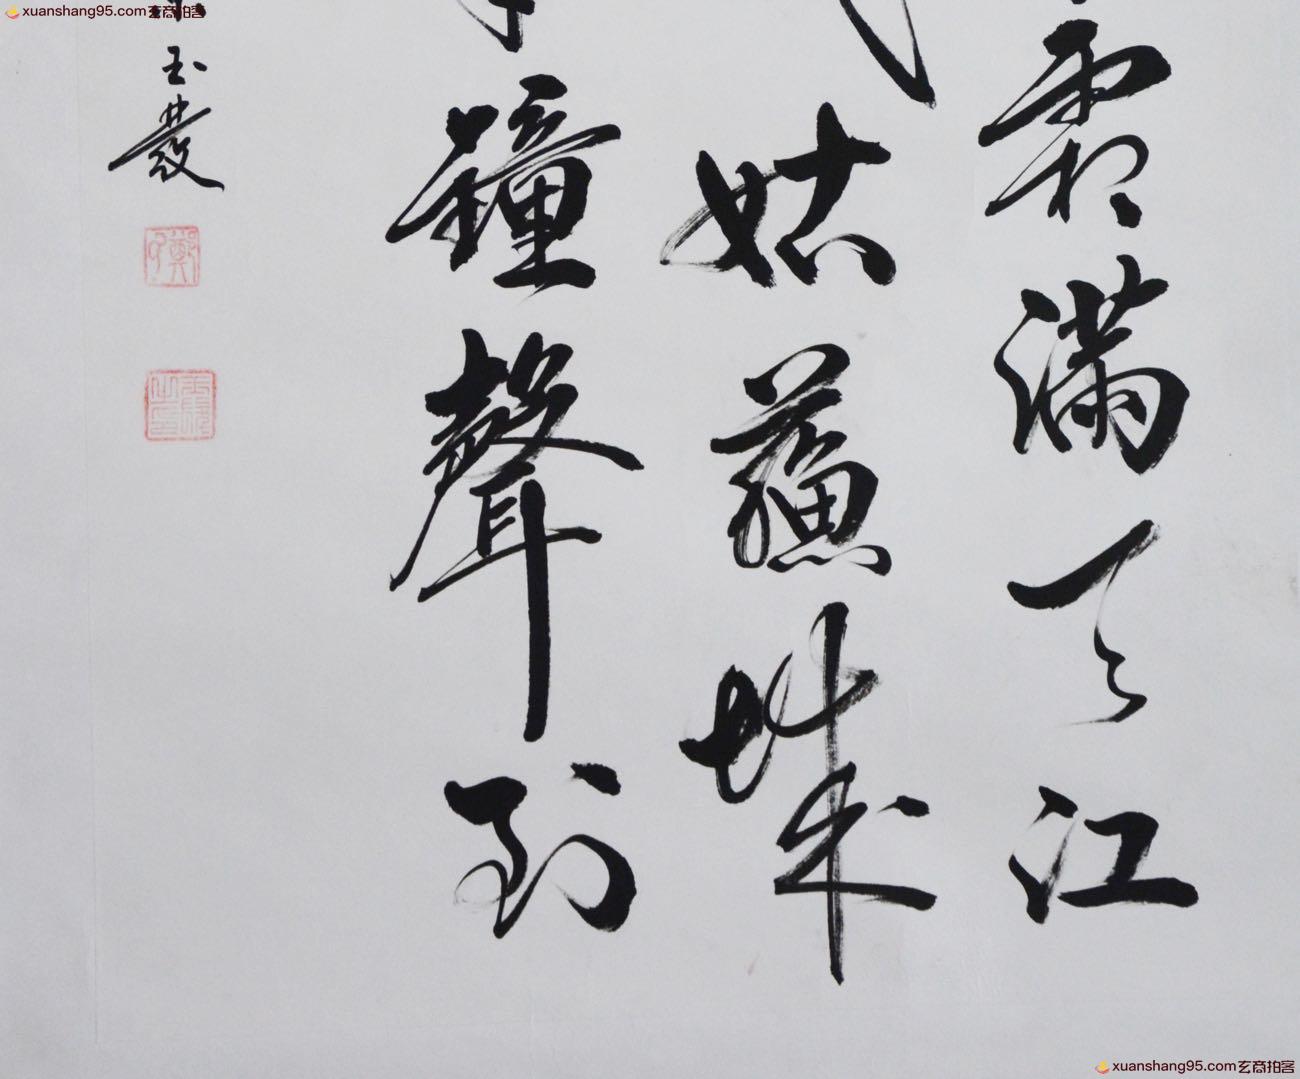 xuanshang95.com玄商拍客
霜滿天江
姑蘇城
鐘聲到
玉發
xuanshang95.com玄商拍客